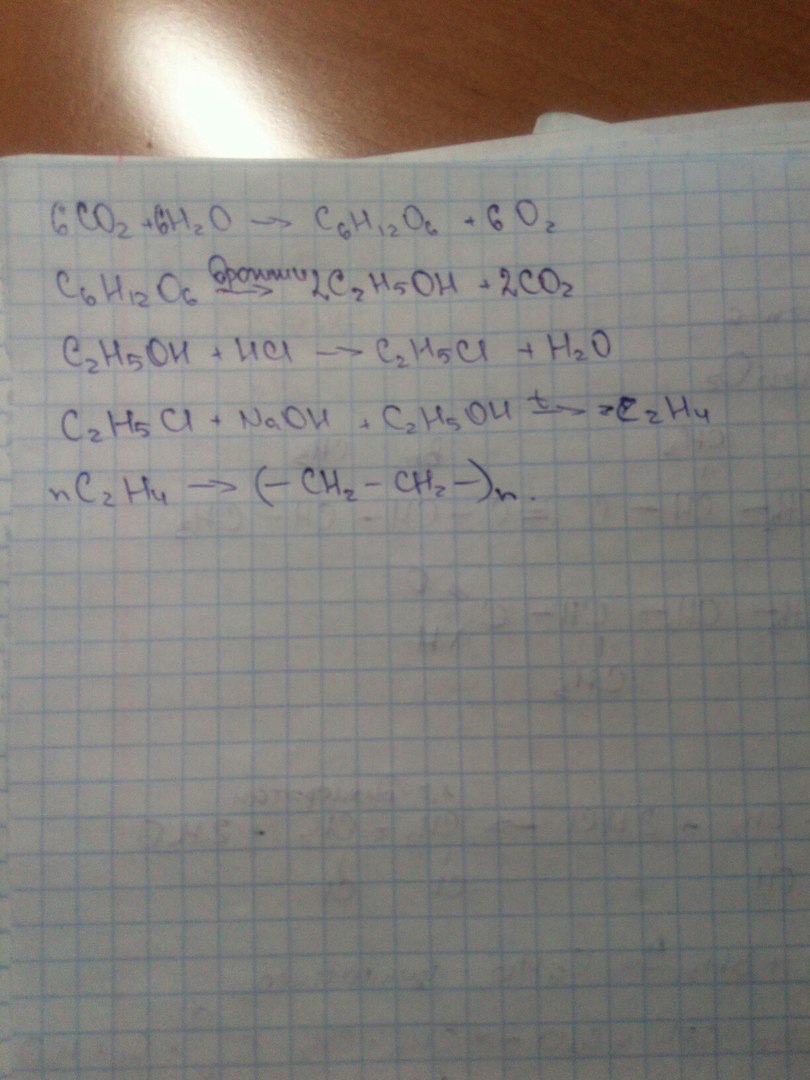 6CO₂ + 6H₂O → C₆H₁₂O₆ + 6O₂
C₆H₁₂O₆ → 2C₂H₅OH + 2CO₂
C₂H₅OH + HCl → C₂H₅Cl + H₂O
C₂H₅Cl + NaOH + C₂H₅OH t→ C₂H₄
nC₂H₄ → (–CH₂–CH₂–)n.